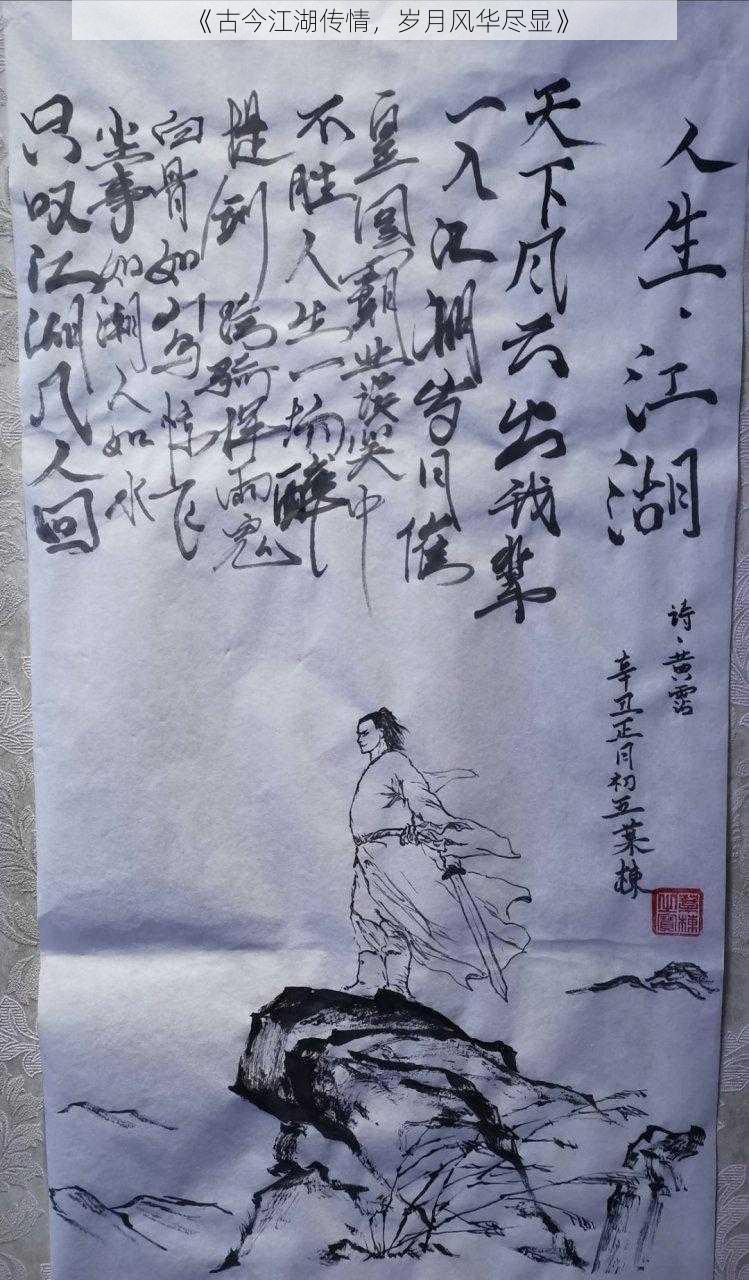 《古今江湖传情，岁月风华尽显》
人生·江湖
诗·黄霑
辛丑正月初五葉棟
天下风云出我輩
一入江湖岁月催
皇图霸业谈笑中
不胜人生一场醉
提剑跨骑挥雨鬼
白骨如山鸟惊飞
尘事如潮人如水
只叹江湖几人回